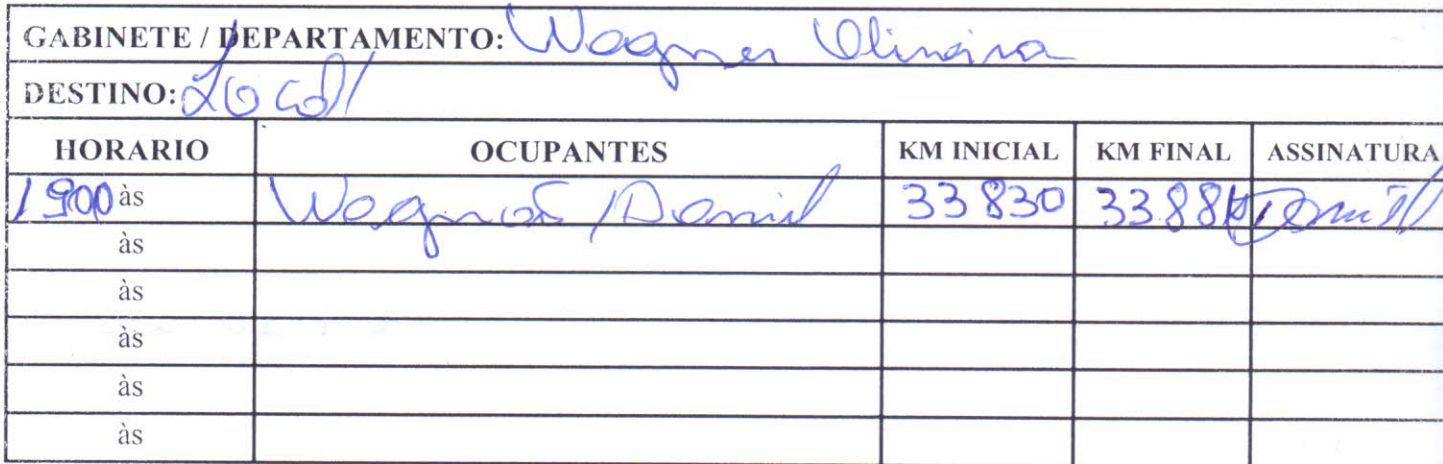 GABINETE / DEPARTAMENTO: Wagner Oliveira
DESTINO: Local
HORARIO OCUPANTES KM INICIAL KM FINAL ASSINATURA
1900 às / Daniel 33830
às
às
às
às
às